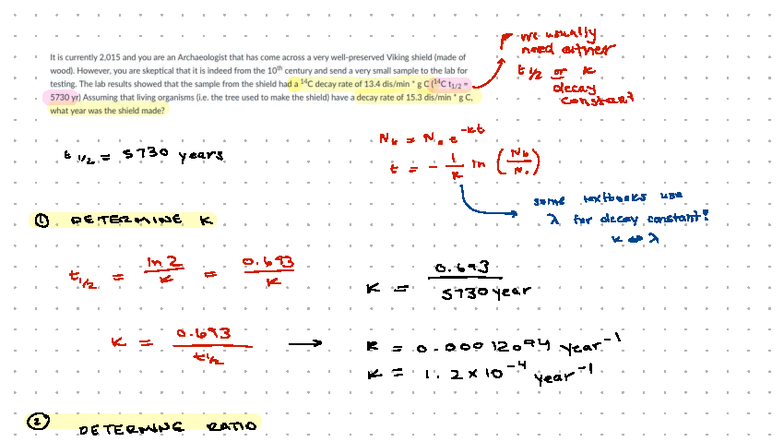 It is currently 2,015 and you are an Archaeologist that has come across a very well-preserved Viking shield (made of
wood). However, you are skeptical that it is indeed from the 10th century and send a very small sample to the lab for
testing. The lab results showed that the sample from the shield had a ¹⁴C decay rate of 13.4 dis/min * g C (¹⁴C t1/2 =
5730 yr) Assuming that living organisms (i.e. the tree used to make the shield) have a decay rate of 15.3 dis/min * g C,
what year was the shield made?
we usually
need either
t 1/2 or k
decay
constant!
t 1/2 = 5730 years
Nt = N₀ e^-kt
t = - 1/k ln (Nt/N₀)
some textbooks use
λ for decay constant!
k ↔ λ
① DETERMINE K
t1/2 = ln 2/k = 0.693/k
k = 0.693/t1/2 →
K = 0.693/5730 year
K = 0.00012094 year⁻¹
K = 1.2 x 10⁻⁴ year⁻¹
② DETERMINE RATIO